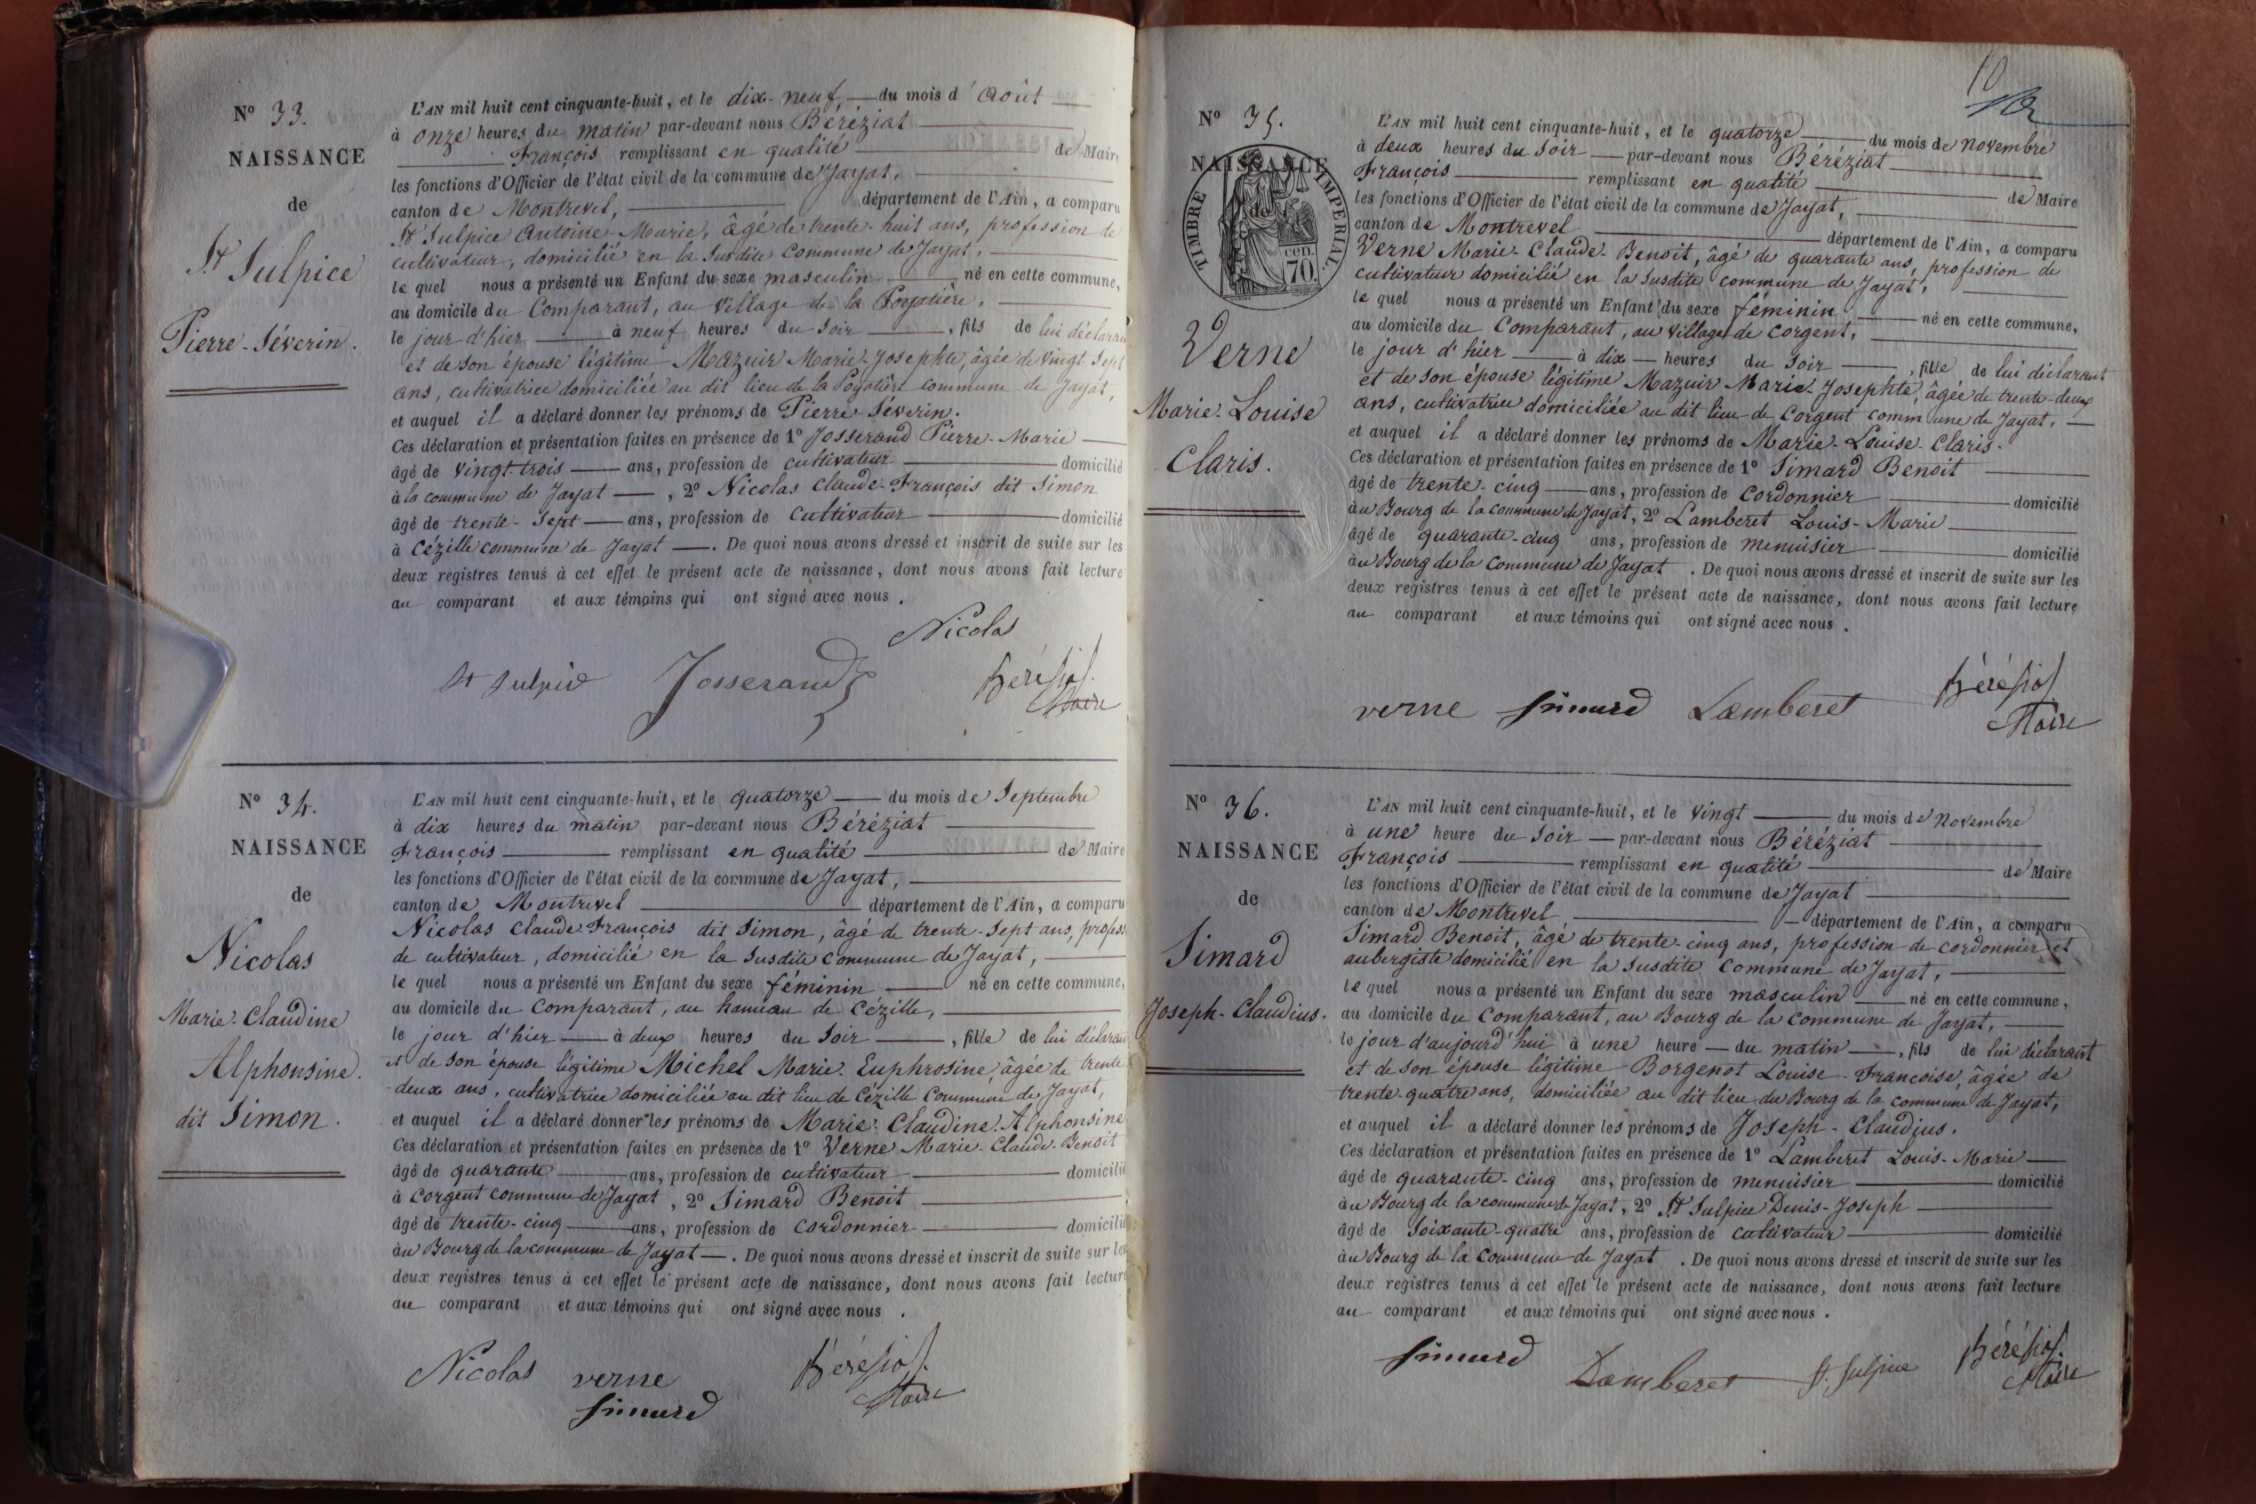 N° 33.
NAISSANCE
de
St Sulpice
Pierre-Séverin.
L'AN mil huit cent cinquante-huit, et le dix-neuf du mois d'Août
à onze heures du matin par-devant nous Béréziat
François remplissant en qualité de Maire
les fonctions d'Officier de l'état civil de la commune de Jayat,
canton de Montrevel, département de l'Ain, a comparu
St Sulpice Antoine-Marie, âgé de trente-huit ans, profession de
cultivateur, domicilié en la susdite commune de Jayat,
le quel nous a présenté un Enfant du sexe masculin né en cette commune,
au domicile du Comparant, au village de la
le jour d'hier à neuf heures du soir, fils de lui déclarant
et de son épouse légitime Mazuir Marie-Josephte, âgée de vingt-sept
ans, cultivatrice domiciliée au dit lieu de la commune de Jayat,
et auquel il a déclaré donner les prénoms de Pierre-Séverin.
Ces déclaration et présentation faites en présence de 1° Josserand Pierre-Marie
âgé de vingt-trois ans, profession de cultivateur domicilié
à la commune de Jayat, 2° Nicolas Claude-François dit Simon
âgé de trente-sept ans, profession de cultivateur domicilié
à Cézille commune de Jayat. De quoi nous avons dressé et inscrit de suite sur les
deux registres tenus à cet effet le présent acte de naissance, dont nous avons fait lecture
au comparant et aux témoins qui ont signé avec nous.
Nicolas
St Sulpice Josserand Béréziat
Maire
N° 34.
NAISSANCE
de
Nicolas
Marie-Claudine
Alphonsine.
dit Simon.
L'AN mil huit cent cinquante-huit, et le quatorze du mois de Septembre
à dix heures du matin par-devant nous Béréziat
François remplissant en qualité de Maire
les fonctions d'Officier de l'état civil de la commune de Jayat,
canton de Montrevel département de l'Ain, a comparu
Nicolas Claude-François dit Simon, âgé de trente-sept ans, profess
de cultivateur, domicilié en la susdite commune de Jayat,
le quel nous a présenté un Enfant du sexe féminin né en cette commune,
au domicile du Comparant, au hameau de Cézille,
le jour d'hier à deux heures du soir, fille de lui déclarant
et de son épouse légitime Michel Marie-Euphrosine, âgée de trente
-deux ans, cultivatrice domiciliée au dit lieu de Cézille commune de Jayat,
et auquel il a déclaré donner les prénoms de Marie-Claudine-Alphonsine
Ces déclaration et présentation faites en présence de 1° Verne Marie-Claude-Benoît
âgé de quarante ans, profession de cultivateur domicilié
à Corgent commune de Jayat, 2° Simard Benoît
âgé de trente-cinq ans, profession de cordonnier domicilié
au Bourg de la commune de Jayat. De quoi nous avons dressé et inscrit de suite sur les
deux registres tenus à cet effet le présent acte de naissance, dont nous avons fait lecture
au comparant et aux témoins qui ont signé avec nous.
Nicolas verne Béréziat
Simard Maire
10
N° 35.
NAISSANCE
de
TIMBRE IMPERIAL.
70 cen.
Verne
Marie-Louise
Claris.
L'AN mil huit cent cinquante-huit, et le quatorze du mois de novembre
à deux heures du soir par-devant nous Béréziat
François remplissant en qualité de Maire
les fonctions d'Officier de l'état civil de la commune de Jayat,
canton de Montrevel département de l'Ain, a comparu
Verne Marie-Claude-Benoît, âgé de quarante ans, profession de
cultivateur domicilié en la susdite commune de Jayat,
le quel nous a présenté un Enfant du sexe féminin né en cette commune,
au domicile du Comparant, au village de Corgent,
le jour d'hier à dix heures du soir, fille de lui déclarant
et de son épouse légitime Mazuir Marie-Josephte, âgée de trente-deux
ans, cultivatrice domiciliée au dit lieu de Corgent commune de Jayat,
et auquel il a déclaré donner les prénoms de Marie-Louise-Claris.
Ces déclaration et présentation faites en présence de 1° Simard Benoît
âgé de trente-cinq ans, profession de cordonnier domicilié
au Bourg de la commune de Jayat, 2° Lamberet Louis-Marie
âgé de quarante-cinq ans, profession de menuisier domicilié
au Bourg de la commune de Jayat. De quoi nous avons dressé et inscrit de suite sur les
deux registres tenus à cet effet le présent acte de naissance, dont nous avons fait lecture
au comparant et aux témoins qui ont signé avec nous.
verne Simard Lamberet Béréziat
Maire
N° 36.
NAISSANCE
de
Simard
Joseph-Claudius.
L'AN mil huit cent cinquante-huit, et le vingt du mois de novembre
à une heure du soir par-devant nous Béréziat
François remplissant en qualité de Maire
les fonctions d'Officier de l'état civil de la commune de Jayat
canton de Montrevel, département de l'Ain, a comparu
Simard Benoît, âgé de trente-cinq ans, profession de cordonnier et
aubergiste domicilié en la susdite commune de Jayat,
le quel nous a présenté un Enfant du sexe masculin né en cette commune,
au domicile du Comparant, au Bourg de la commune de Jayat,
le jour d'aujourd'hui à une heure du matin, fils de lui déclarant
et de son épouse légitime Borgenot Louise-Françoise, âgée de
trente-quatre ans, domiciliée au dit lieu du Bourg de la commune de Jayat,
et auquel il a déclaré donner les prénoms de Joseph-Claudius.
Ces déclaration et présentation faites en présence de 1° Lamberet Louis-Marie
âgé de quarante-cinq ans, profession de menuisier domicilié
au Bourg de la commune de Jayat, 2° St Sulpice Denis-Joseph
âgé de soixante-quatre ans, profession de cultivateur domicilié
au Bourg de la commune de Jayat. De quoi nous avons dressé et inscrit de suite sur les
deux registres tenus à cet effet le présent acte de naissance, dont nous avons fait lecture
au comparant et aux témoins qui ont signé avec nous.
Simard Lamberet St. Sulpice Béréziat
Maire